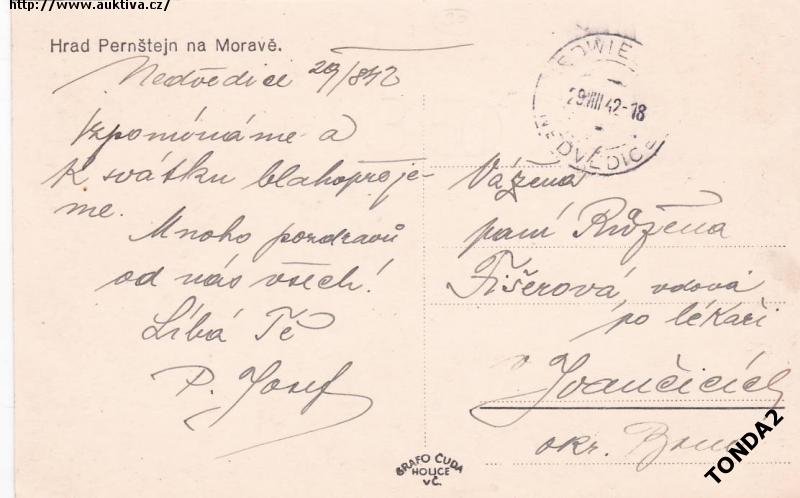 http://www.auktiva.cz/
Hrad Pernštejn na Moravě.
Nedvědice 29/8 42
Vzpomínáme a
K svátku blahopřeje-
me.
Mnoho pozdravů
od nás všech!
Líbá Tě
P. Josef
NEDWIE
29.VIII.42-18
NEDVĚDICE
Vážená
paní Růžena
Fišerová, vdova
po lékaři
v Ivančicích
okr. Brno
GRAFO ČUDA
HOLICE
V Č.
TONDA2